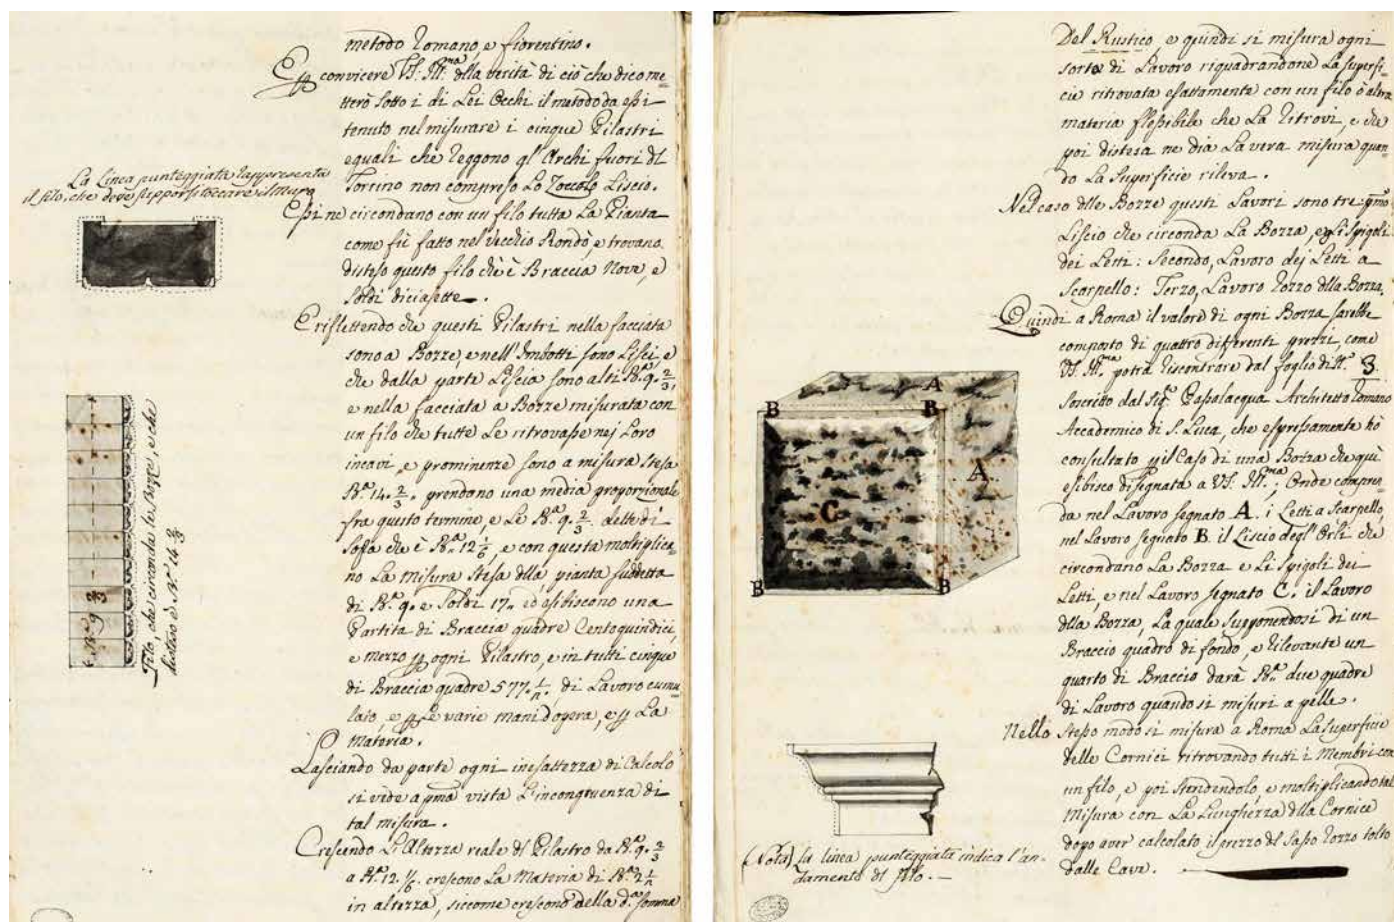 metodo Romano, e fiorentino.
convicere VS. Ill.ma dlla verità di ciò che dico me=
tterò sotto i di Lei Occhi il metodo da essi
tenuto nel misurare i cinque Pilastri
eguali che reggono gl'Archi fuori dl
Torrino non compreso Lo Zoccolo Liscio.
Essi ne circondano con un filo tutta La Pianta
come fù fatto nel Vecchio Rondò, e trovano
disteso questo filo ch'è Braccia Nove, e
Soldi diciasette.
E riflettendo che questi Pilastri nella facciata
sono a Bozze, e nell'Imbotti sono Lisci, e
che dalla parte Liscia sono alti B.a 9. 2/3,
e nella facciata a Bozze misurata con
un filo che tutte Le ritrovasse nej Loro
incavi, e prominenze sono a misura stesa
B.a 14. 2/3. prendono una media proporzionale
fra questo termine, e Le B.a 9. 2/3. dette di
sopa che è B.a 12 1/6, e con questa moltiplica=
no La misura stesa dlla pianta suddetta
di B.a 9. e Soldi 17. ed esibiscono una
Partita di Braccia quadre Centoquindici,
e mezzo ogni Pilastro, e in tutti cinque
di Braccia quadre 577. di Lavoro cumu
lato, e Le varie mani d'opera, e La
Materia.
Lasciando da parte ogni inesattezza di Calcolo
si vide a pma vista L'incongruenza di
tal misura.
Crescendo L'Altezza reale dl Pilastro da B.a 9. 2/3
a B.a 12. 1/6. crescono La Materia di B.a 2
in altezza, siccome crescono della d.a somma
La Linea punteggiata rappresenta
il filo, che deve supporsi toccare il Muro
B.a 9 2/3
Filo, che circonda le Bozze, e che
disteso è B.a 14 2/3
Del Rustico, e quindi si misura ogni
sorta di Lavoro riquadrandone La superfi=
cie ritrovata esattamente con un filo ò altra
materia flessibile che La ritrovi, e che
poi distesa ne dia La vera misura quan=
do La superficie rileva.
Nel caso dlle Bozze questi Lavori sono tre: pmo
Liscio che circonda La Bozza, e gli Spigoli
dei Letti: Secondo, Lavoro dej Letti a
Scarpello: Terzo, Lavoro rozzo dlla Bozza.
Quindi a Roma il valore di ogni Bozza sarebbe
composto di quattro differenti prezzi, come
VS. Ill.ma potrà riscontrare dal foglio di N. 3
soscritto dal Sig. Papalacqua Architetto Romano
Accademico di S. Luca, che espressamente hò
consultato il Caso di una Bozza che quì
esibisco disegnata a VS. Ill.ma; Onde compren=
da nel Lavoro segnato A. i Letti a Scarpello,
nel Lavoro segnato B. il Liscio degl'Orli che
circondano La Bozza e Li Spigoli dei
Letti, e nel Lavoro segnato C. il Lavoro
dlla Bozza, La quale supponendosi di un
Braccio quadro di fondo, e rilevante un
quarto di Braccio darà B.a due quadre
di Lavoro quando si misuri a pelle.
Nello stesso modo si misura a Roma La superficie
delle Cornici ritrovando tutti i Membri con
un filo, e poi stendendolo, e moltiplicando tal
Misura con La Lunghezza dlla Cornice
dopo aver calcolato il prezzo dl Sasso rozzo tolto
dalle Cave.
A
B
B
A
C
B
B
(Nota) La linea punteggiata indica l'an=
damento dl filo.